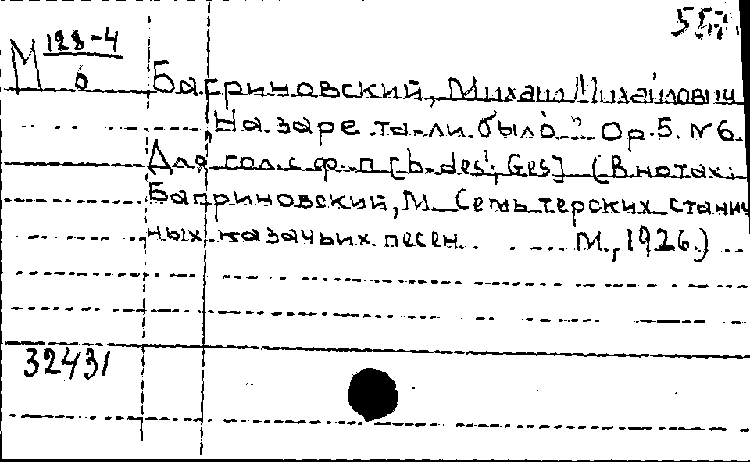 М 128-4
6
Багриновский, Михаил Михайлович
"На заре та-ли было" Op.5. №6.
Для гол. с ф-п [b-des², Ges] (В нотах:
Багриновский, М. Семь терских станич
ных казачьих песен. М., 1926.)
32431